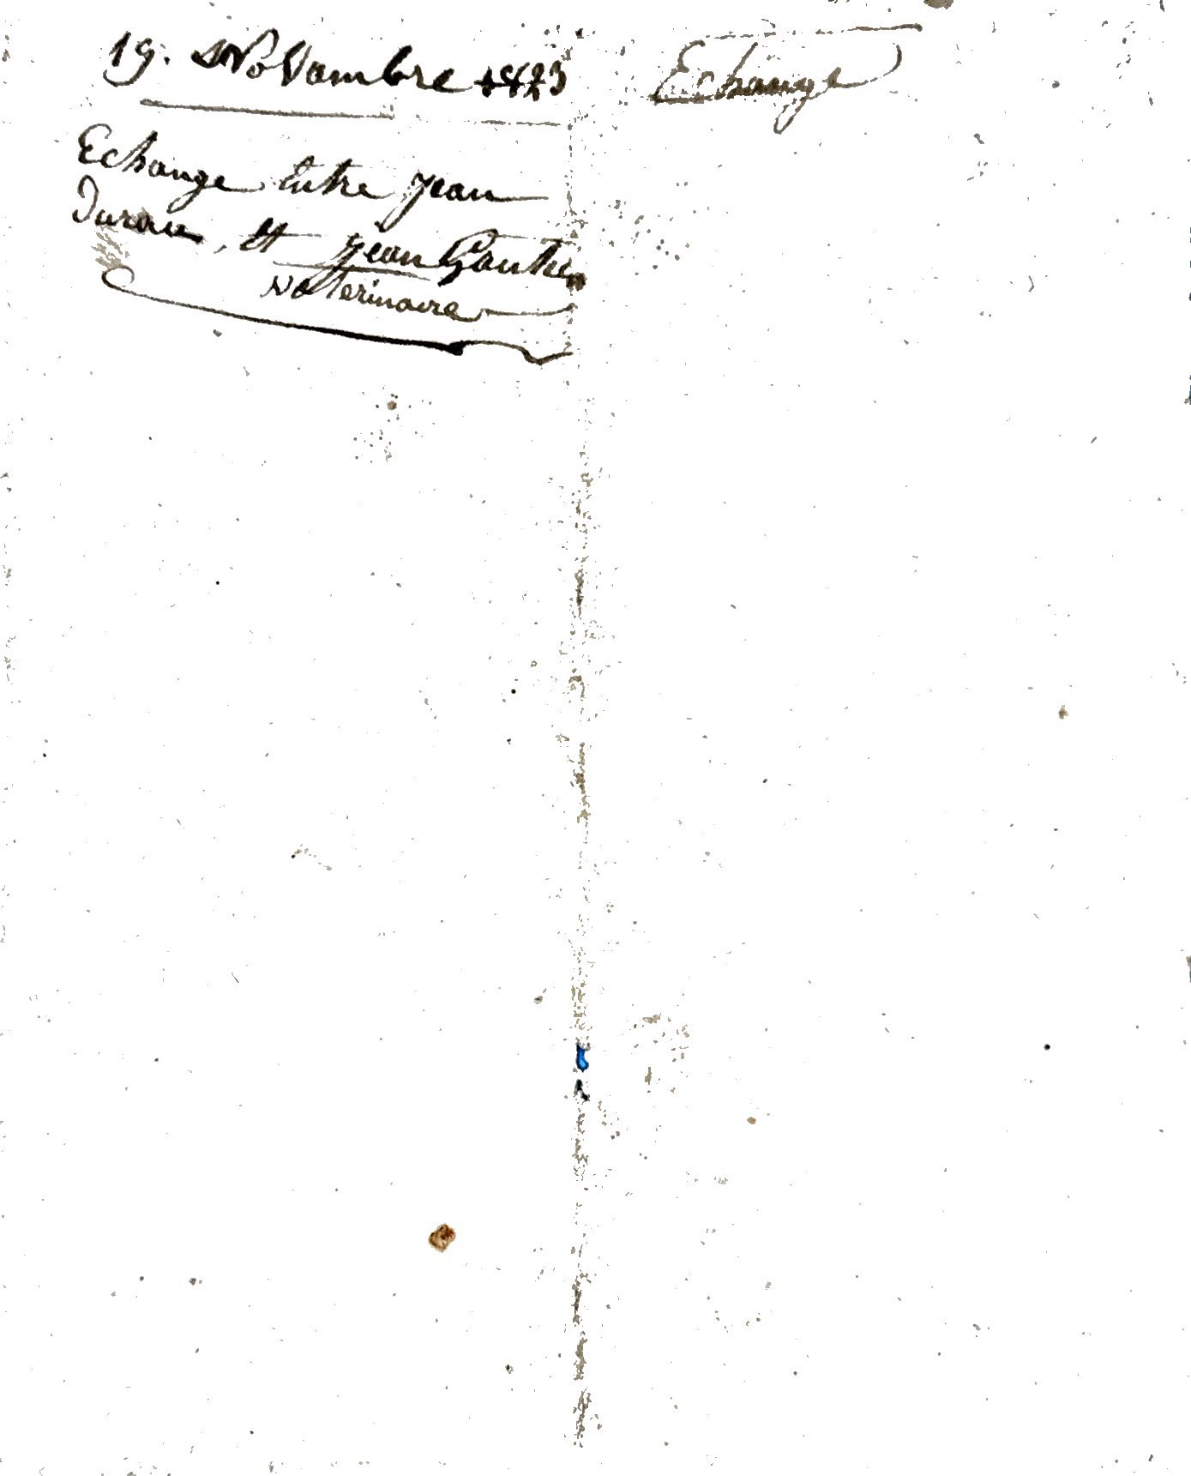 19. Novambre 1823
Echange Entre Jean
Durou, Et Jean Gautier
Veterinaire
Echange